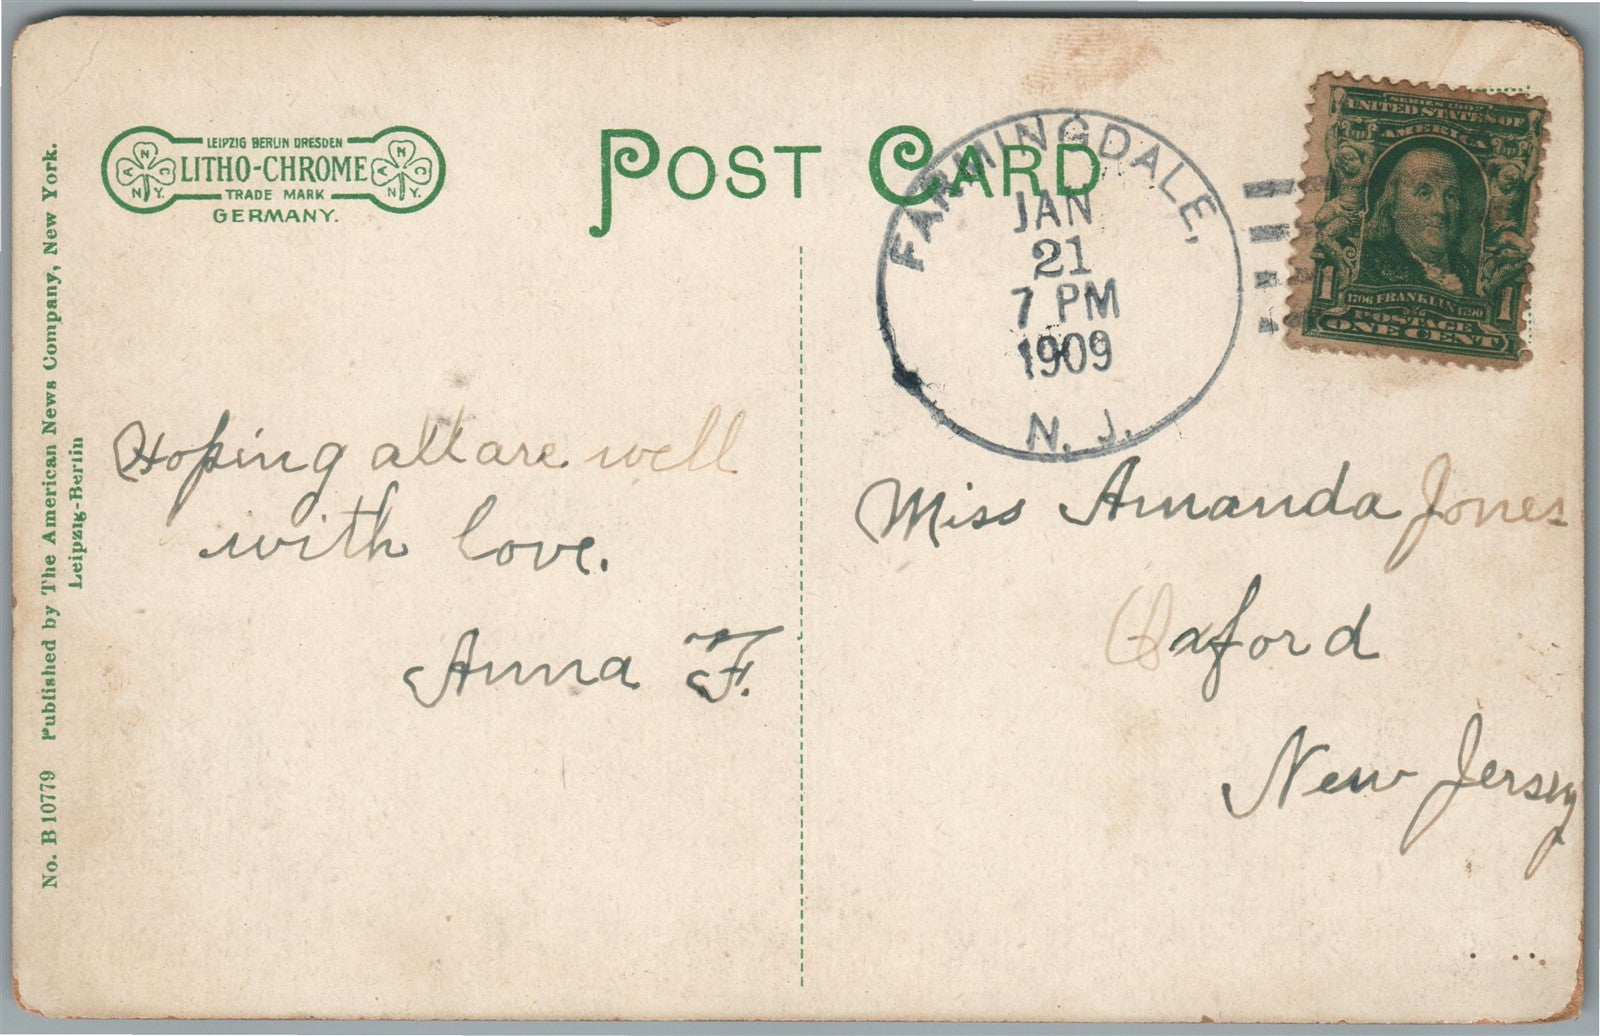 LEIPZIG BERLIN DRESDEN
LITHO-CHROME
TRADE MARK
GERMANY.
A N C
N.Y.
A N C
N.Y.
POST CARD
FARMINGDALE,
JAN
21
7 PM
1909
N. J.
SERIES 1902
UNITED STATES OF
AMERICA
1 1
1706 FRANKLIN 1790
POSTAGE
ONE CENT
No. B 10779 Published by The American News Company, New York.
Leipzig-Berlin
Hoping all are well
with love.
Anna F.
Miss Amanda Jones
Oxford
New Jersey